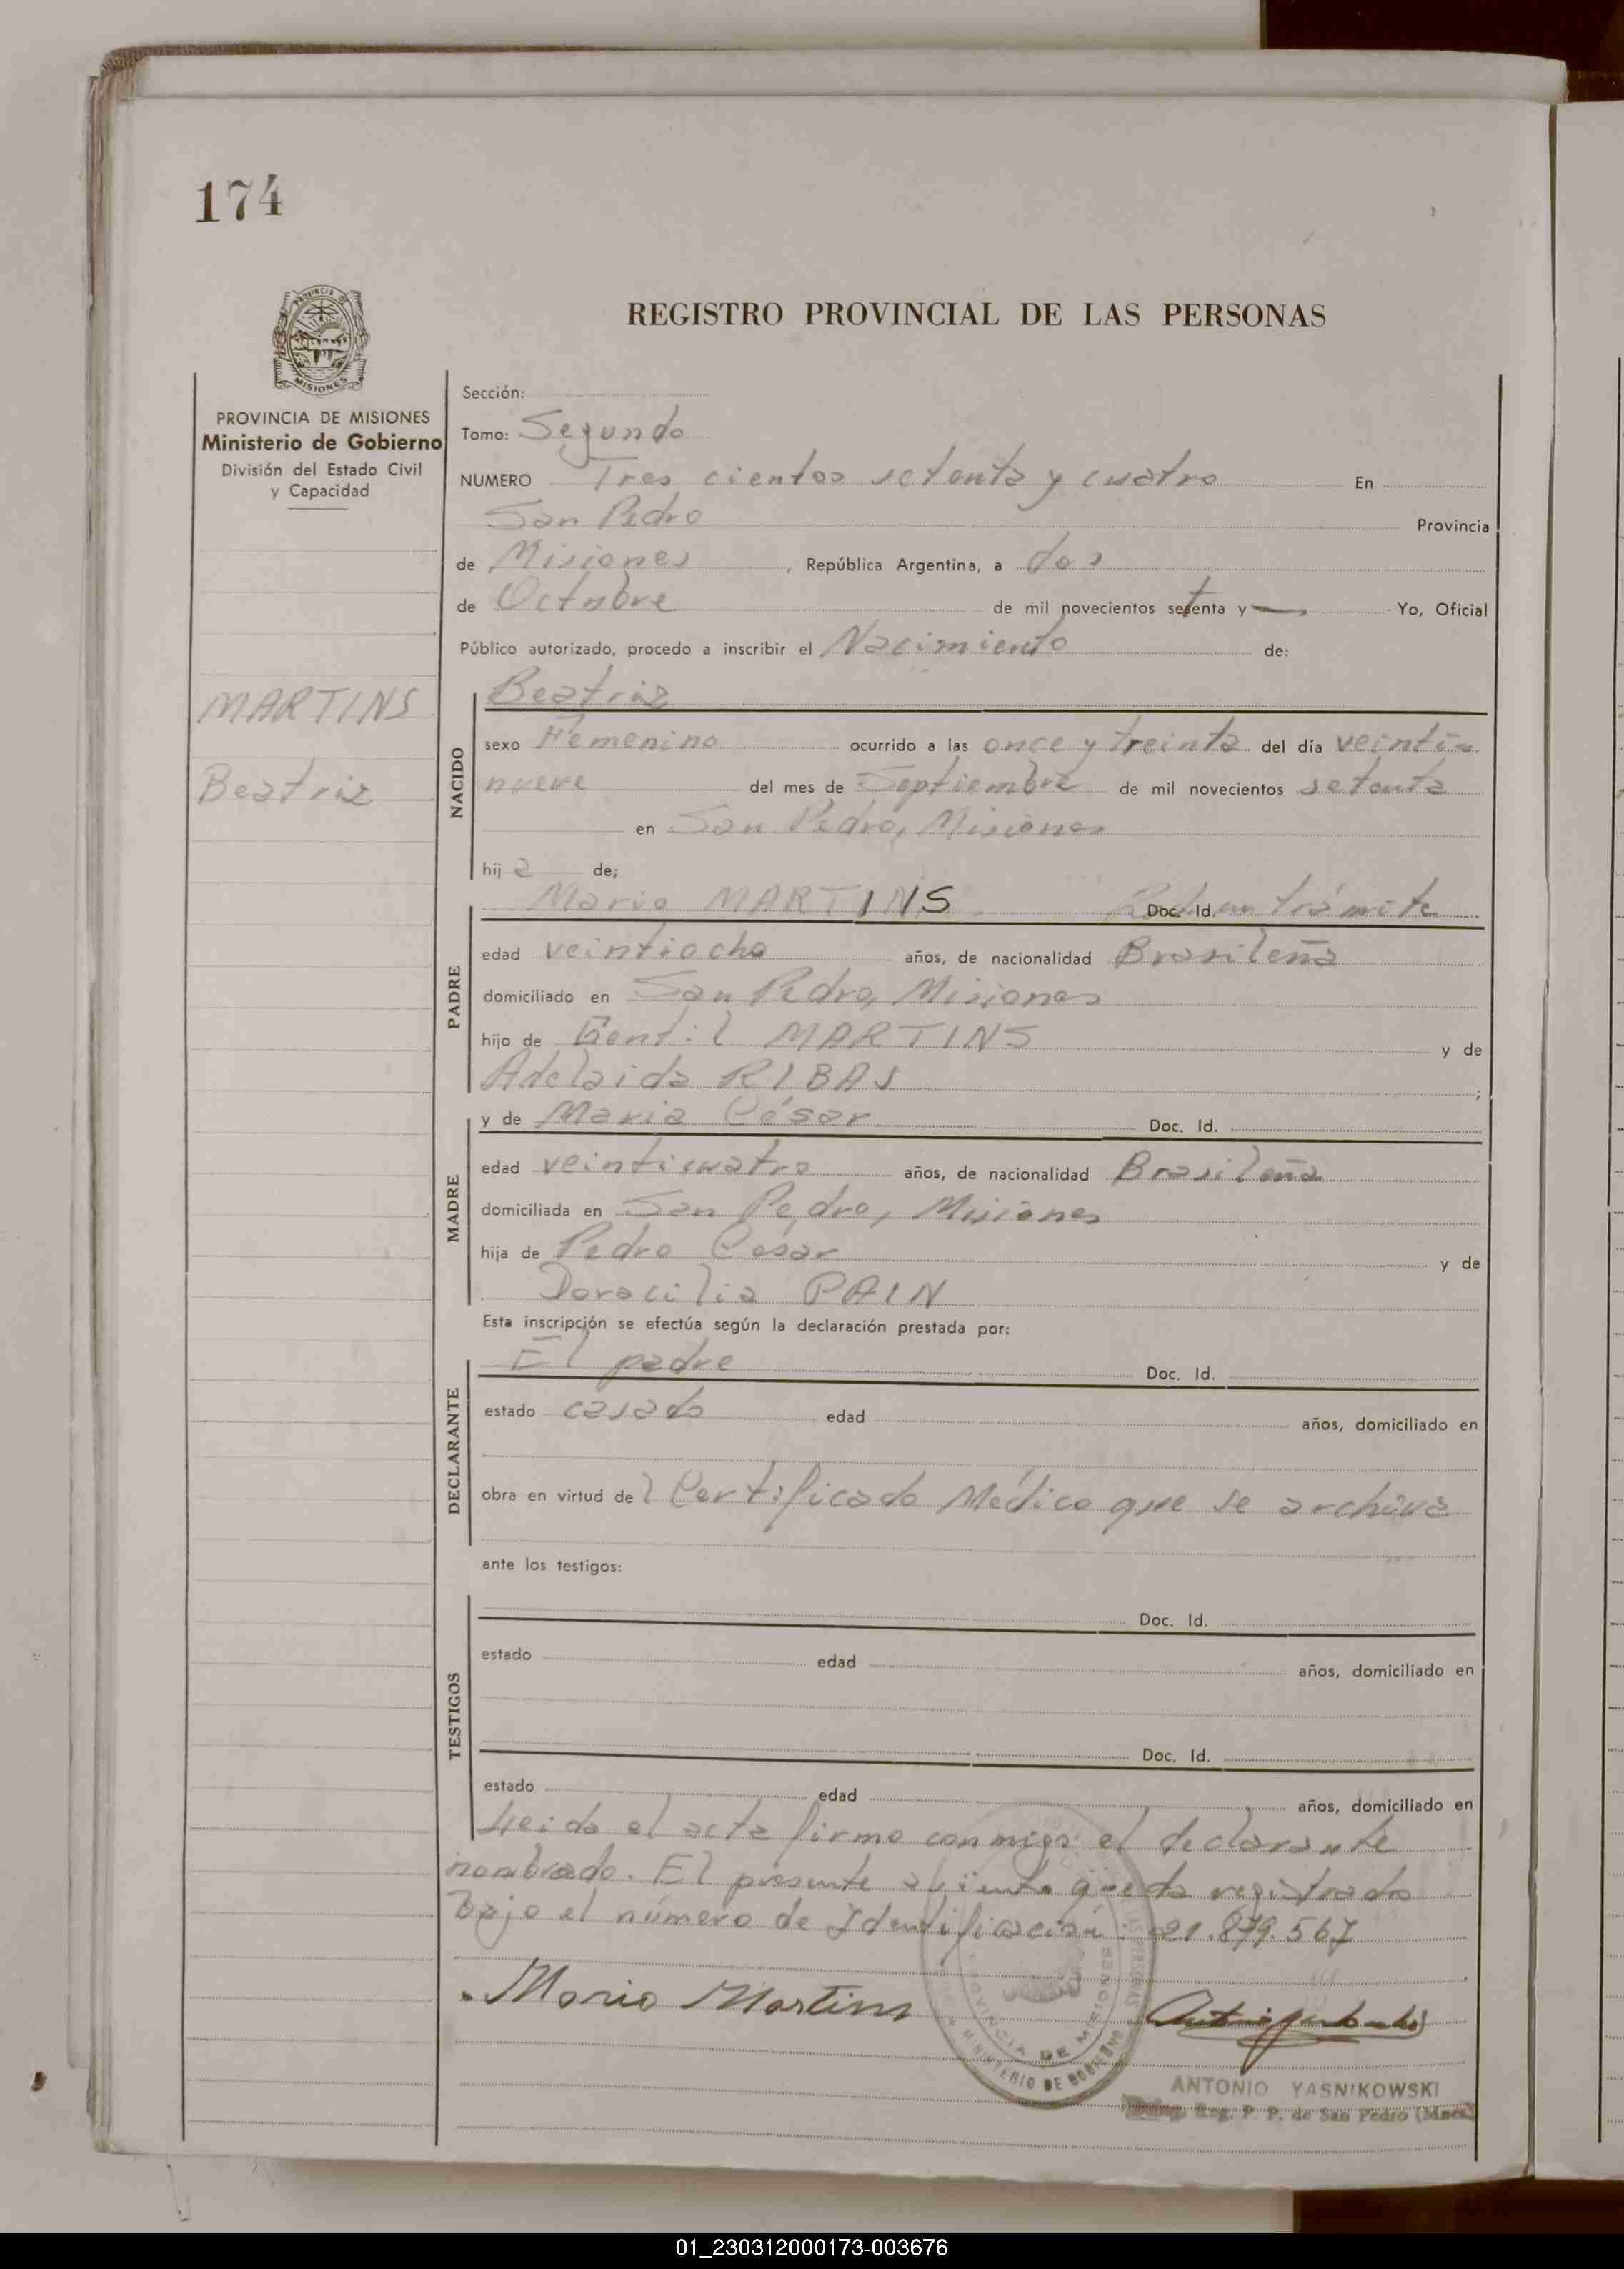 174
REGISTRO PROVINCIAL DE LAS PERSONAS
PROVINCIA DE MISIONES
Ministerio de Gobierno
División del Estado Civil
y Capacidad
MARTINS
Beatriz
Sección:
Tomo: Segundo
NUMERO Tres cientos setenta y cuatro En
San Pedro Provincia
de Misiones, República Argentina, a dos
de Octubre de mil novecientos setenta y — Yo, Oficial
Público autorizado, procedo a inscribir el Nacimiento de:
NACIDO
Beatriz
sexo Femenino ocurrido a las once y treinta del día veinti-
nueve del mes de Septiembre de mil novecientos setenta
en San Pedro, Misiones
hija de;
PADRE
Mario MARTINS Doc. Id. en trámite
edad veintiocho años, de nacionalidad Brasileña
domiciliado en San Pedro, Misiones
hijo de Gentil MARTINS y de
Adelaida RIBAS ;
MADRE
y de Maria César Doc. Id.
edad veinticuatro años, de nacionalidad Brasileña
domiciliada en San Pedro, Misiones
hija de Pedro César y de
Doracilia PAIN
Esta inscripción se efectúa según la declaración prestada por:
DECLARANTE
El padre Doc. Id.
estado casado edad años, domiciliado en
obra en virtud del Certificado Médico que se archiva
ante los testigos:
TESTIGOS
Doc. Id.
estado edad años, domiciliado en
Doc. Id.
estado edad años, domiciliado en
Leida el acta firma conmigo el declarante
nombrado. El presente asiento queda registrado
Bajo el número de Identificación: 21.879.567
Mario Martins
PROVINCIA DE MISIONES
MINISTERIO DE GOBIERNO
ANTONIO YASNIKOWSKI
Reg. P. P. de San Pedro (Mnes)
01_230312000173-003676